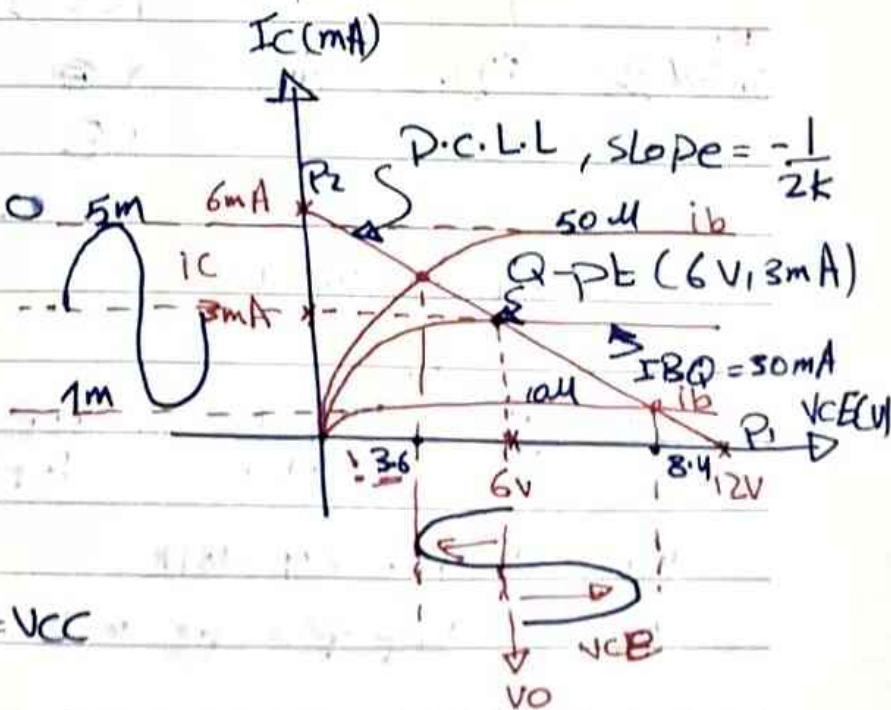 Ic (mA)
D.C.L.L , slope = -1/2k
P2
5m 6mA 50 M ib
iC Q-pt (6V, 3mA)
3mA
IBQ = 30mA
1m 10M ib VCE(V)
P1
3.6 6V 8.4 12V
= VCC
VCE
VO